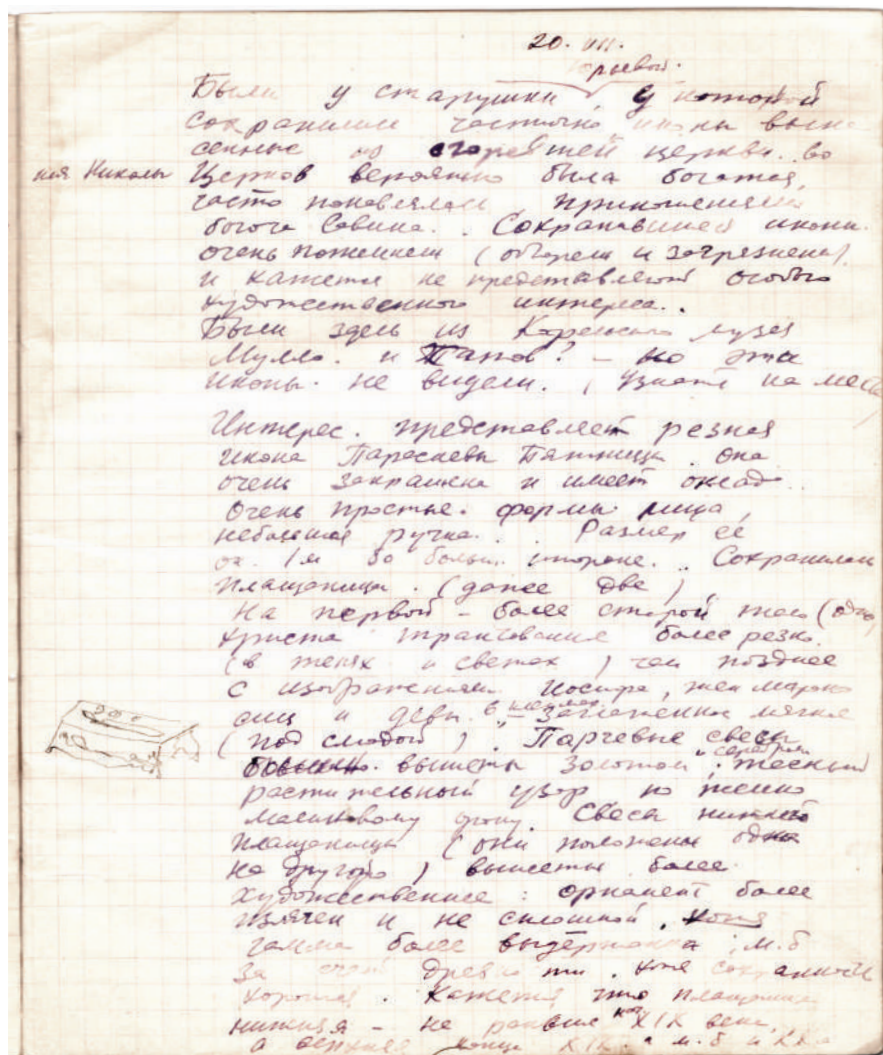 20. VII.
Юрьевой
Были у старушки у которой
сохранились частично иконы выне
сенные из сгоревшей церкви во
имя Николы Церков вероятно была богатая,
часто поновлялась приношениями
богача Савина. Сохранившиеся иконы
очень пожжены (обгорели и загрязнены)
и кажется не представляют особого
художественного интереса.
Были здесь из Карельского музея
Мулло. и Тапов? – но эти
иконы не видели. (Узнать на месте)
Интерес. представляет резная
икона Параскевы Пятницы. Она
очень закрашена и имеет оклад.
Очень простые формы лица,
небольшая ручка.. Размер её
ок. 1м по больш. стороне. Сохранились
плащаницы. (даже две)
На первой – более старой тело (одно)
христа трактование более резко
(в тенях и светах) чем позднее
с изображением Иосифа, жен мироно
сиц и девы.
(под слюдой). Парчевые свесы
вышиты золотом и серебром. тесный
растительный узор по темно
малиновому фону. Свесы нижней
плащаницы (они положены одна
на другую) вышиты более
художественнее: орнамент более
изячен и не сплошной. хотя
гамма более выдержанна, м.б
за счет древности. хотя сохранность
хорошая. Кажется что плащаница
нижняя – не раньше нач XIX века,
а верхняя конца XIX. а м.б и XX в